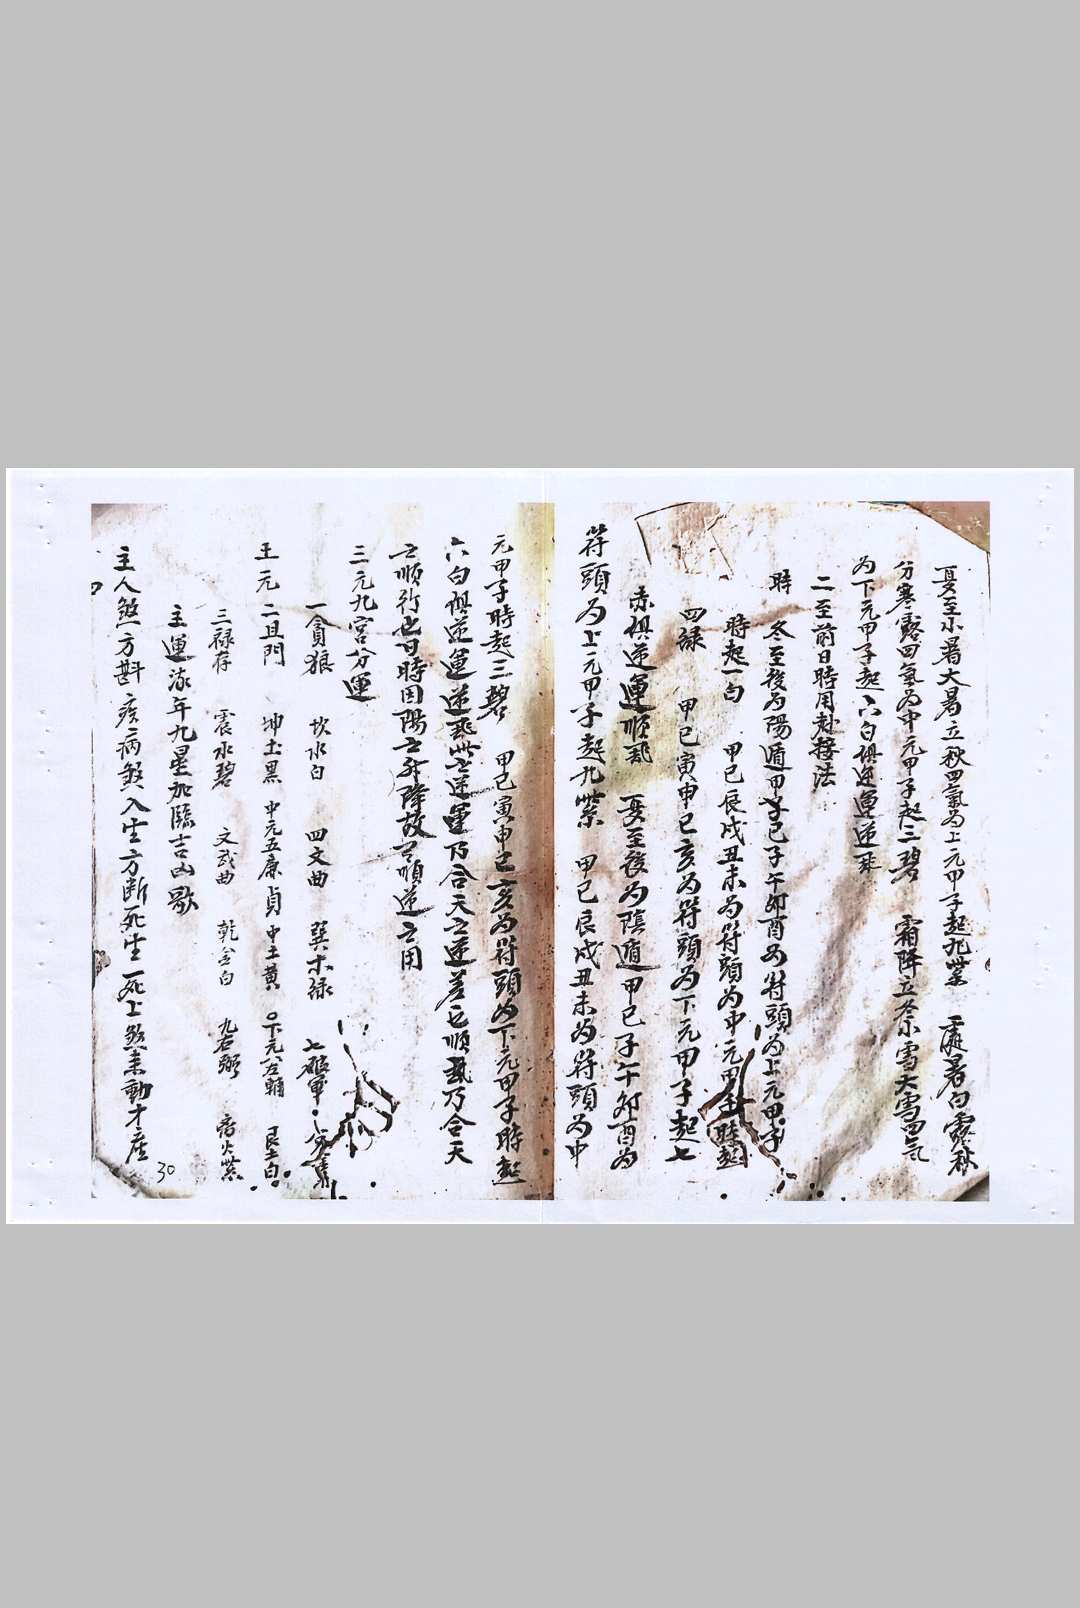 夏至小暑大暑立秋四氣為上元甲子起九紫　處暑白露秋
分寒露四氣為中元甲子起三碧　霜降立冬小雪大雪四氣
为下元甲子起六白俱逆運逆飛
二至前日時用赴接法
時　冬至後为陽遁甲己子午卯酉为符頭为上元甲子
時起一白　甲己辰戌丑未为符頭为中元甲子時起
四綠　甲己寅申巳亥为符頭为下元甲子起七
赤俱逆運順飛　夏至後为陰遁甲己子午卯酉为
符頭为上元甲子起九紫　甲己辰戌丑未为符頭为中
元甲子時起三碧　甲己寅申巳亥为符頭为下元甲子時起
六白俱逆運逆飛此之逆運乃合天之逆差也順飛乃合天
之順行也日時因陽之升降故有順逆之用
三元九宮分運
一貪狼　坎水白　四文曲　巽木禄　七破軍
王元二巨門　坤土黑　中元五廉貞中土黄　下元八左輔　艮土白
三禄存　震水碧　文武曲　乾金白　九右弼　火紫
主運流年九星加臨吉凶歌
主人煞方斟疾病煞入生方断死生死上煞来動才産
30